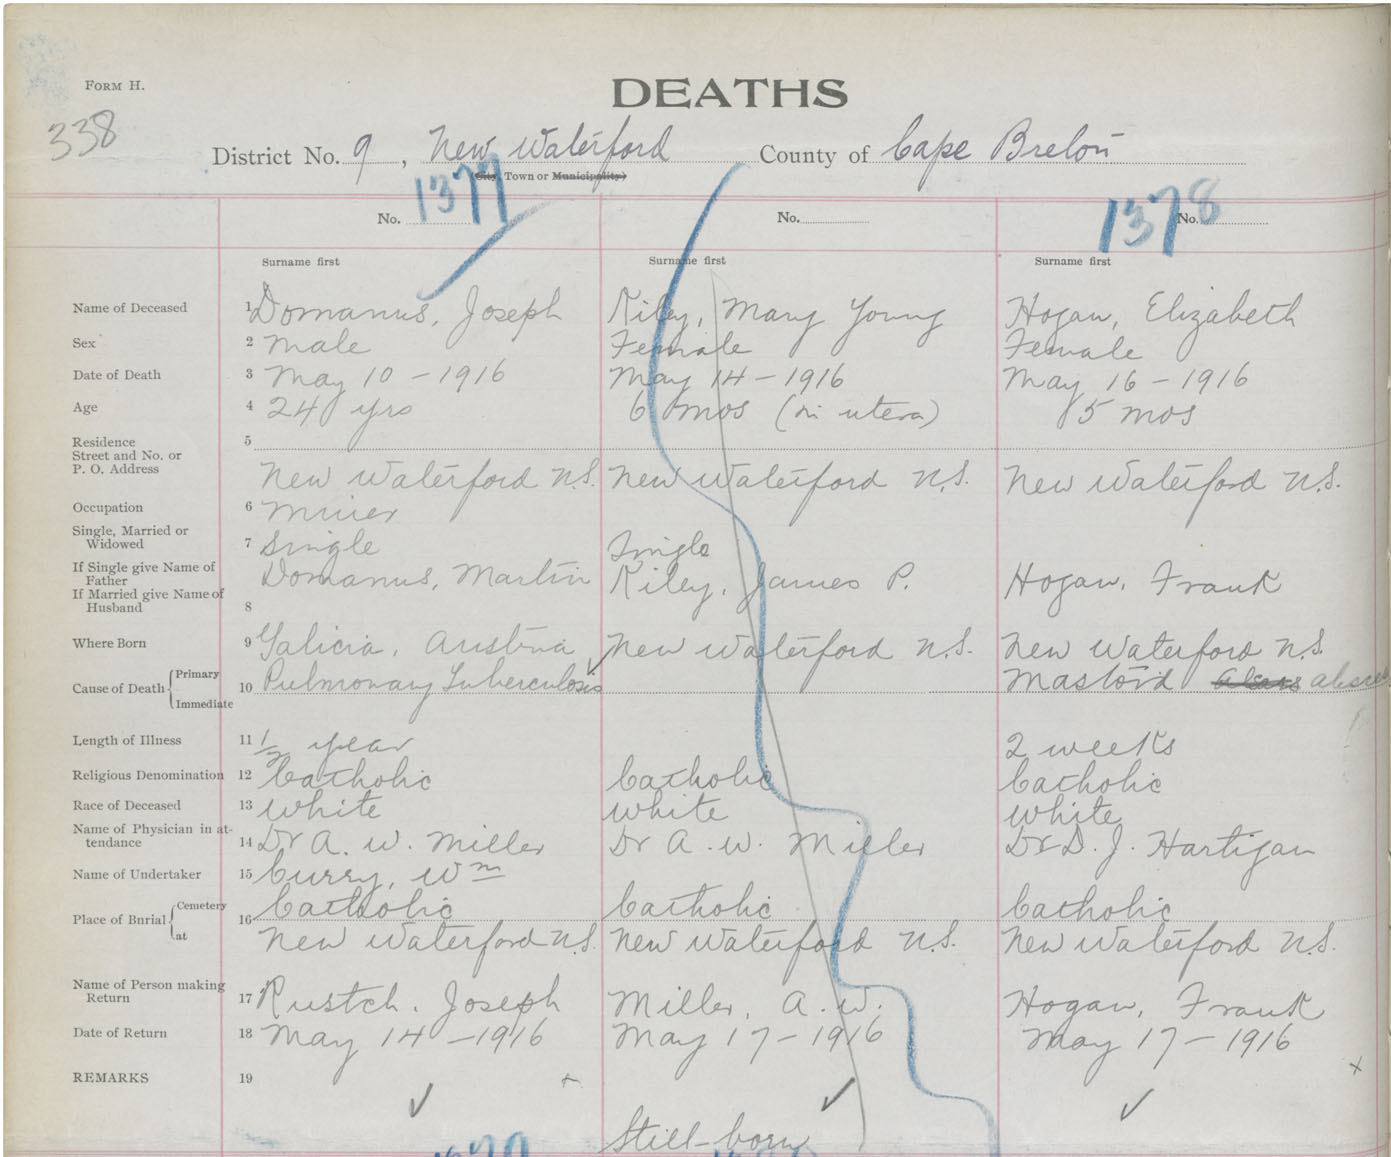 FORM H.
DEATHS
338
District No. 9, New Waterford County of Cape Breton
(City, Town or Municipality)
No. 1377 No. No. 1378
Surname first Surname first Surname first
Name of Deceased 1 Domanus, Joseph Riley, Mary Young Hogan, Elizabeth
Sex 2 Male Female Female
Date of Death 3 May 10 - 1916 May 14 - 1916 May 16 - 1916
Age 4 24 yrs 6 mos (in utera) 5 mos
Residence 5
Street and No. or
P. O. Address New Waterford N.S. New Waterford N.S. New Waterford N.S.
Occupation 6 Miner
Single, Married or
Widowed 7 Single Single
If Single give Name of
Father Domanus, Martin Riley, James P. Hogan, Frank
If Married give Name of
Husband 8
Where Born 9 Galicia, Austria New Waterford N.S. New Waterford N.S.
Cause of Death { Primary 10 Pulmonary Tuberculosis Mastoid
Immediate
Length of Illness 11 1/2 year 2 weeks
Religious Denomination 12 Catholic Catholic Catholic
Race of Deceased 13 White White White
Name of Physician in at-
tendance 14 Dr A. W. Miller Dr A. W. Miller Dr D. J. Hartigan
Name of Undertaker 15 Curry, Wm
Place of Burial { Cemetery 16 Catholic Catholic Catholic
at New Waterford N.S. New Waterford N.S. New Waterford N.S.
Name of Person making
Return 17 Rustch, Joseph Miller, A. W. Hogan, Frank
Date of Return 18 May 14 - 1916 May 17 - 1916 May 17 - 1916
REMARKS 19
Still-born